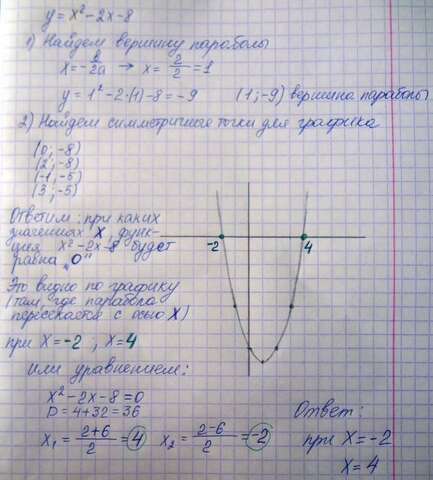 y = x² - 2x - 8
1) Найдем вершину параболы
x = - b/2a → x = 2/2 = 1
y = 1² - 2·(1) - 8 = -9 (1; -9) вершина параболы
2) Найдем симметричные точки для графика
(0; -8)
(2; -8)
(-1; -5)
(3; -5)
Ответим: при каких
значениях X функ-
ция x² - 2x - 8 будет
равна „0"
Это видно по графику
(там, где парабола
пересекается с осью X)
при X = -2 ; X = 4
-2 4
Или уравнением:
x² - 2x - 8 = 0
D = 4 + 32 = 36
x₁ = (2+6)/2 = 4 x₂ = (2-6)/2 = -2
Ответ:
при X = -2
X = 4